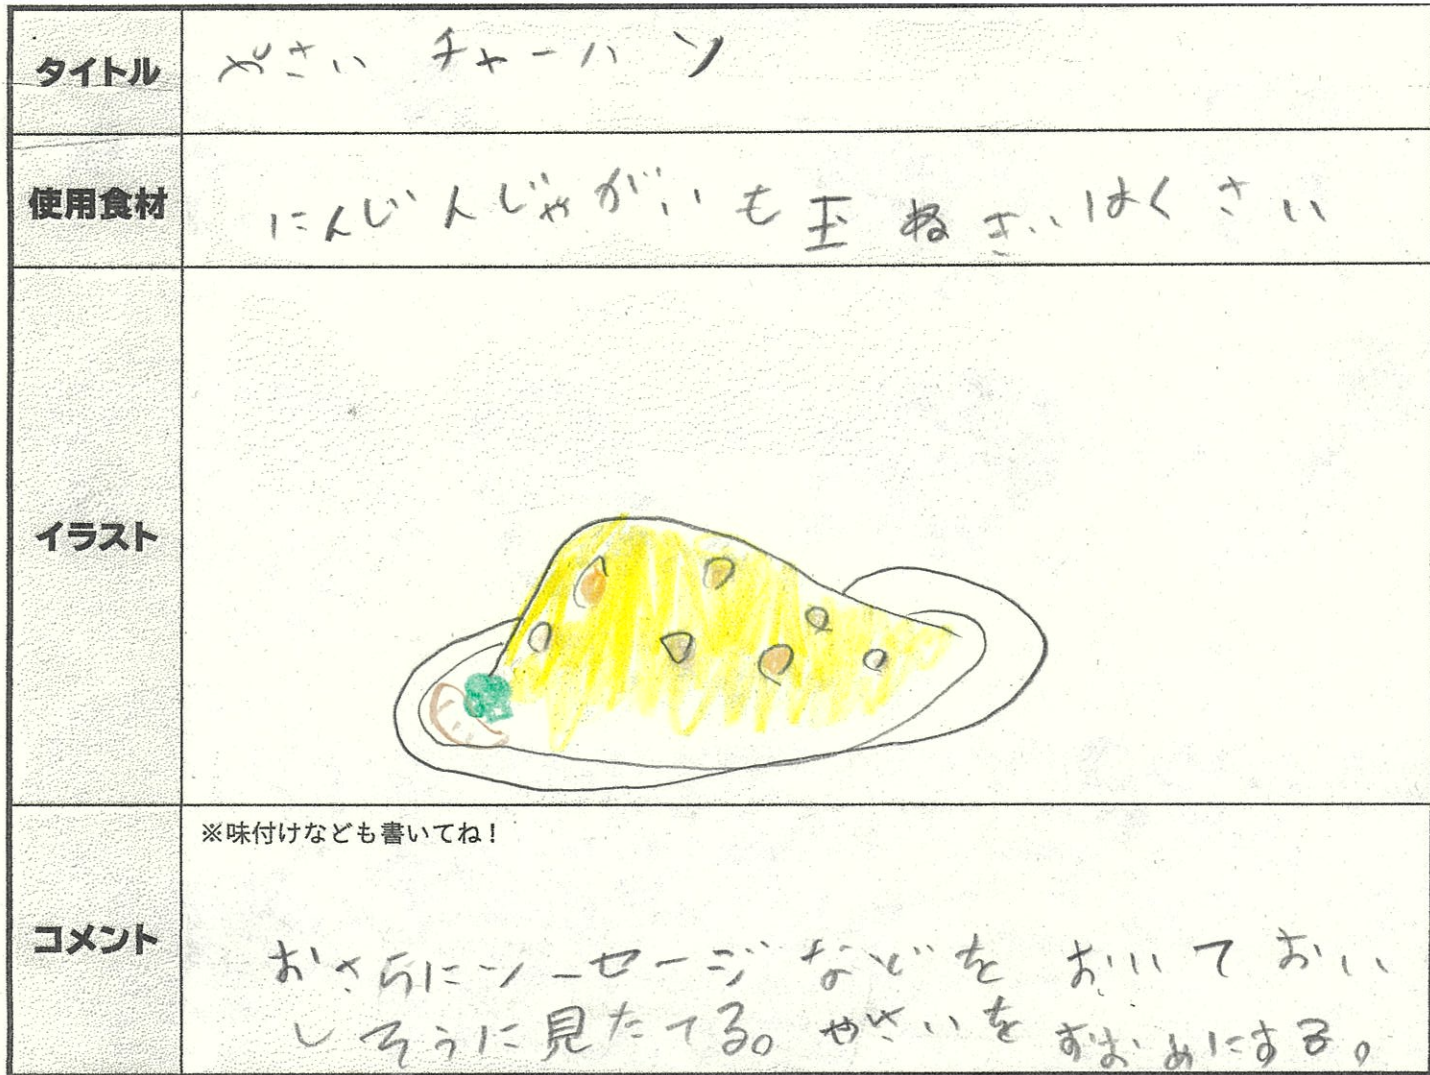 タイトル
やさい チャーハン
使用食材
にんじんじゃがいも玉ねぎはくさい
イラスト
※味付けなども書いてね！
コメント
おさらにソーセージなどをおいておい
しそうに見たてる。やさいを にする。